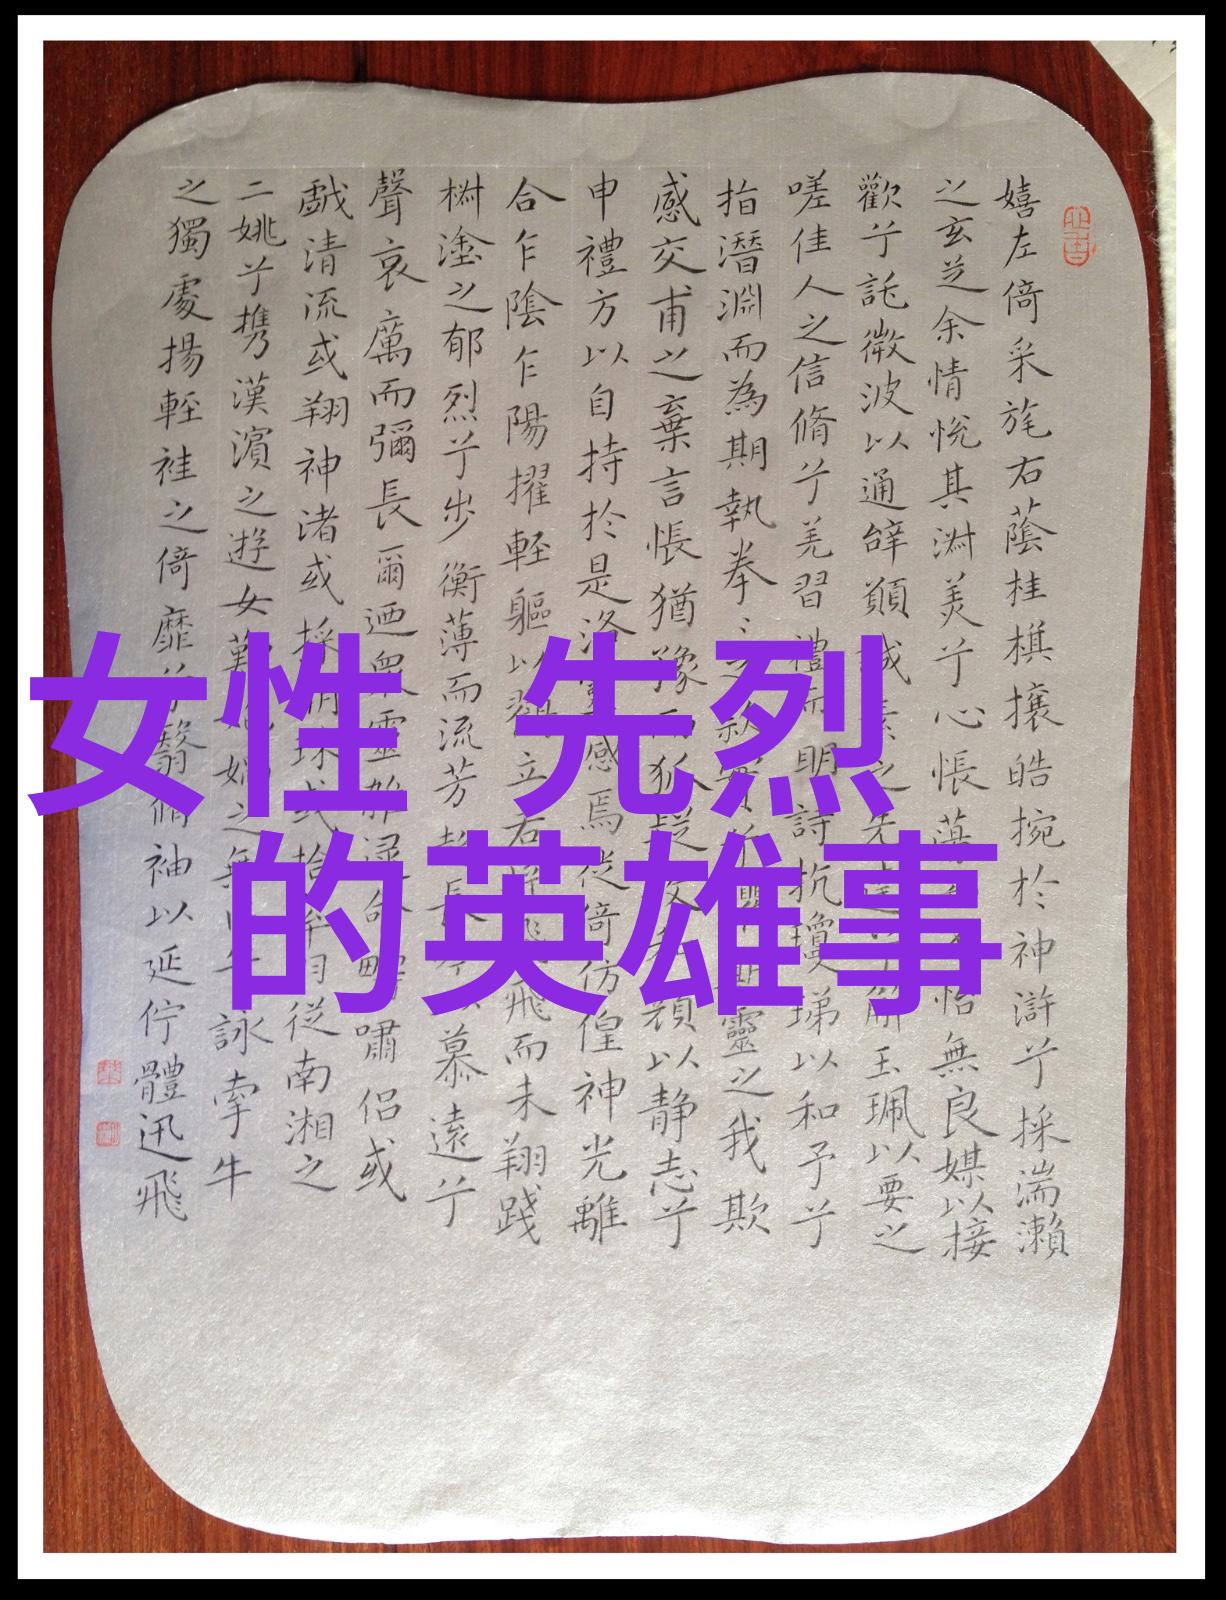 嬉左倚采旄右蔭桂棋攘皓捥於神滸兮採湍瀨
之玄芝余情悅其淑美兮心悵蕩怡無良媒以接
歡兮託微波以通辭願誠素之先達兮解玉珮以要之
嗟佳人之信脩兮羌習禮而明詩抗瓊珶以和予兮
指潛淵而為期執拳之款實靈之我欺
感交甫之棄言悵猶豫而狐疑收顏以靜志兮
申禮方以自持於是洛靈感焉徙倚仿偟神光離
合乍陰乍陽擢輕軀以鶴立若將飛而未翔踐
樹塗之郁烈兮步衡薄而流芳超長以慕遠兮
聲哀厲而彌長爾迺眾靈雜遝命疇嘯侶或
戲清流或翔神渚或採明珠或拾翠羽從南湘之
二姚兮攜漢濱之遊女歎匏媧之無匹兮詠牽牛
之獨處揚輕袿之倚靡兮翳脩袖以延佇體迅飛
女性 先烈
的英雄事